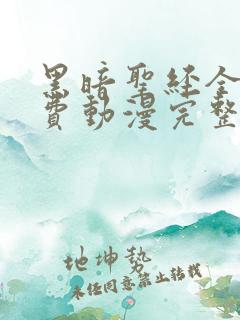 黑暗聖経全
費動漫完整
地坤势
未经同意禁止转载